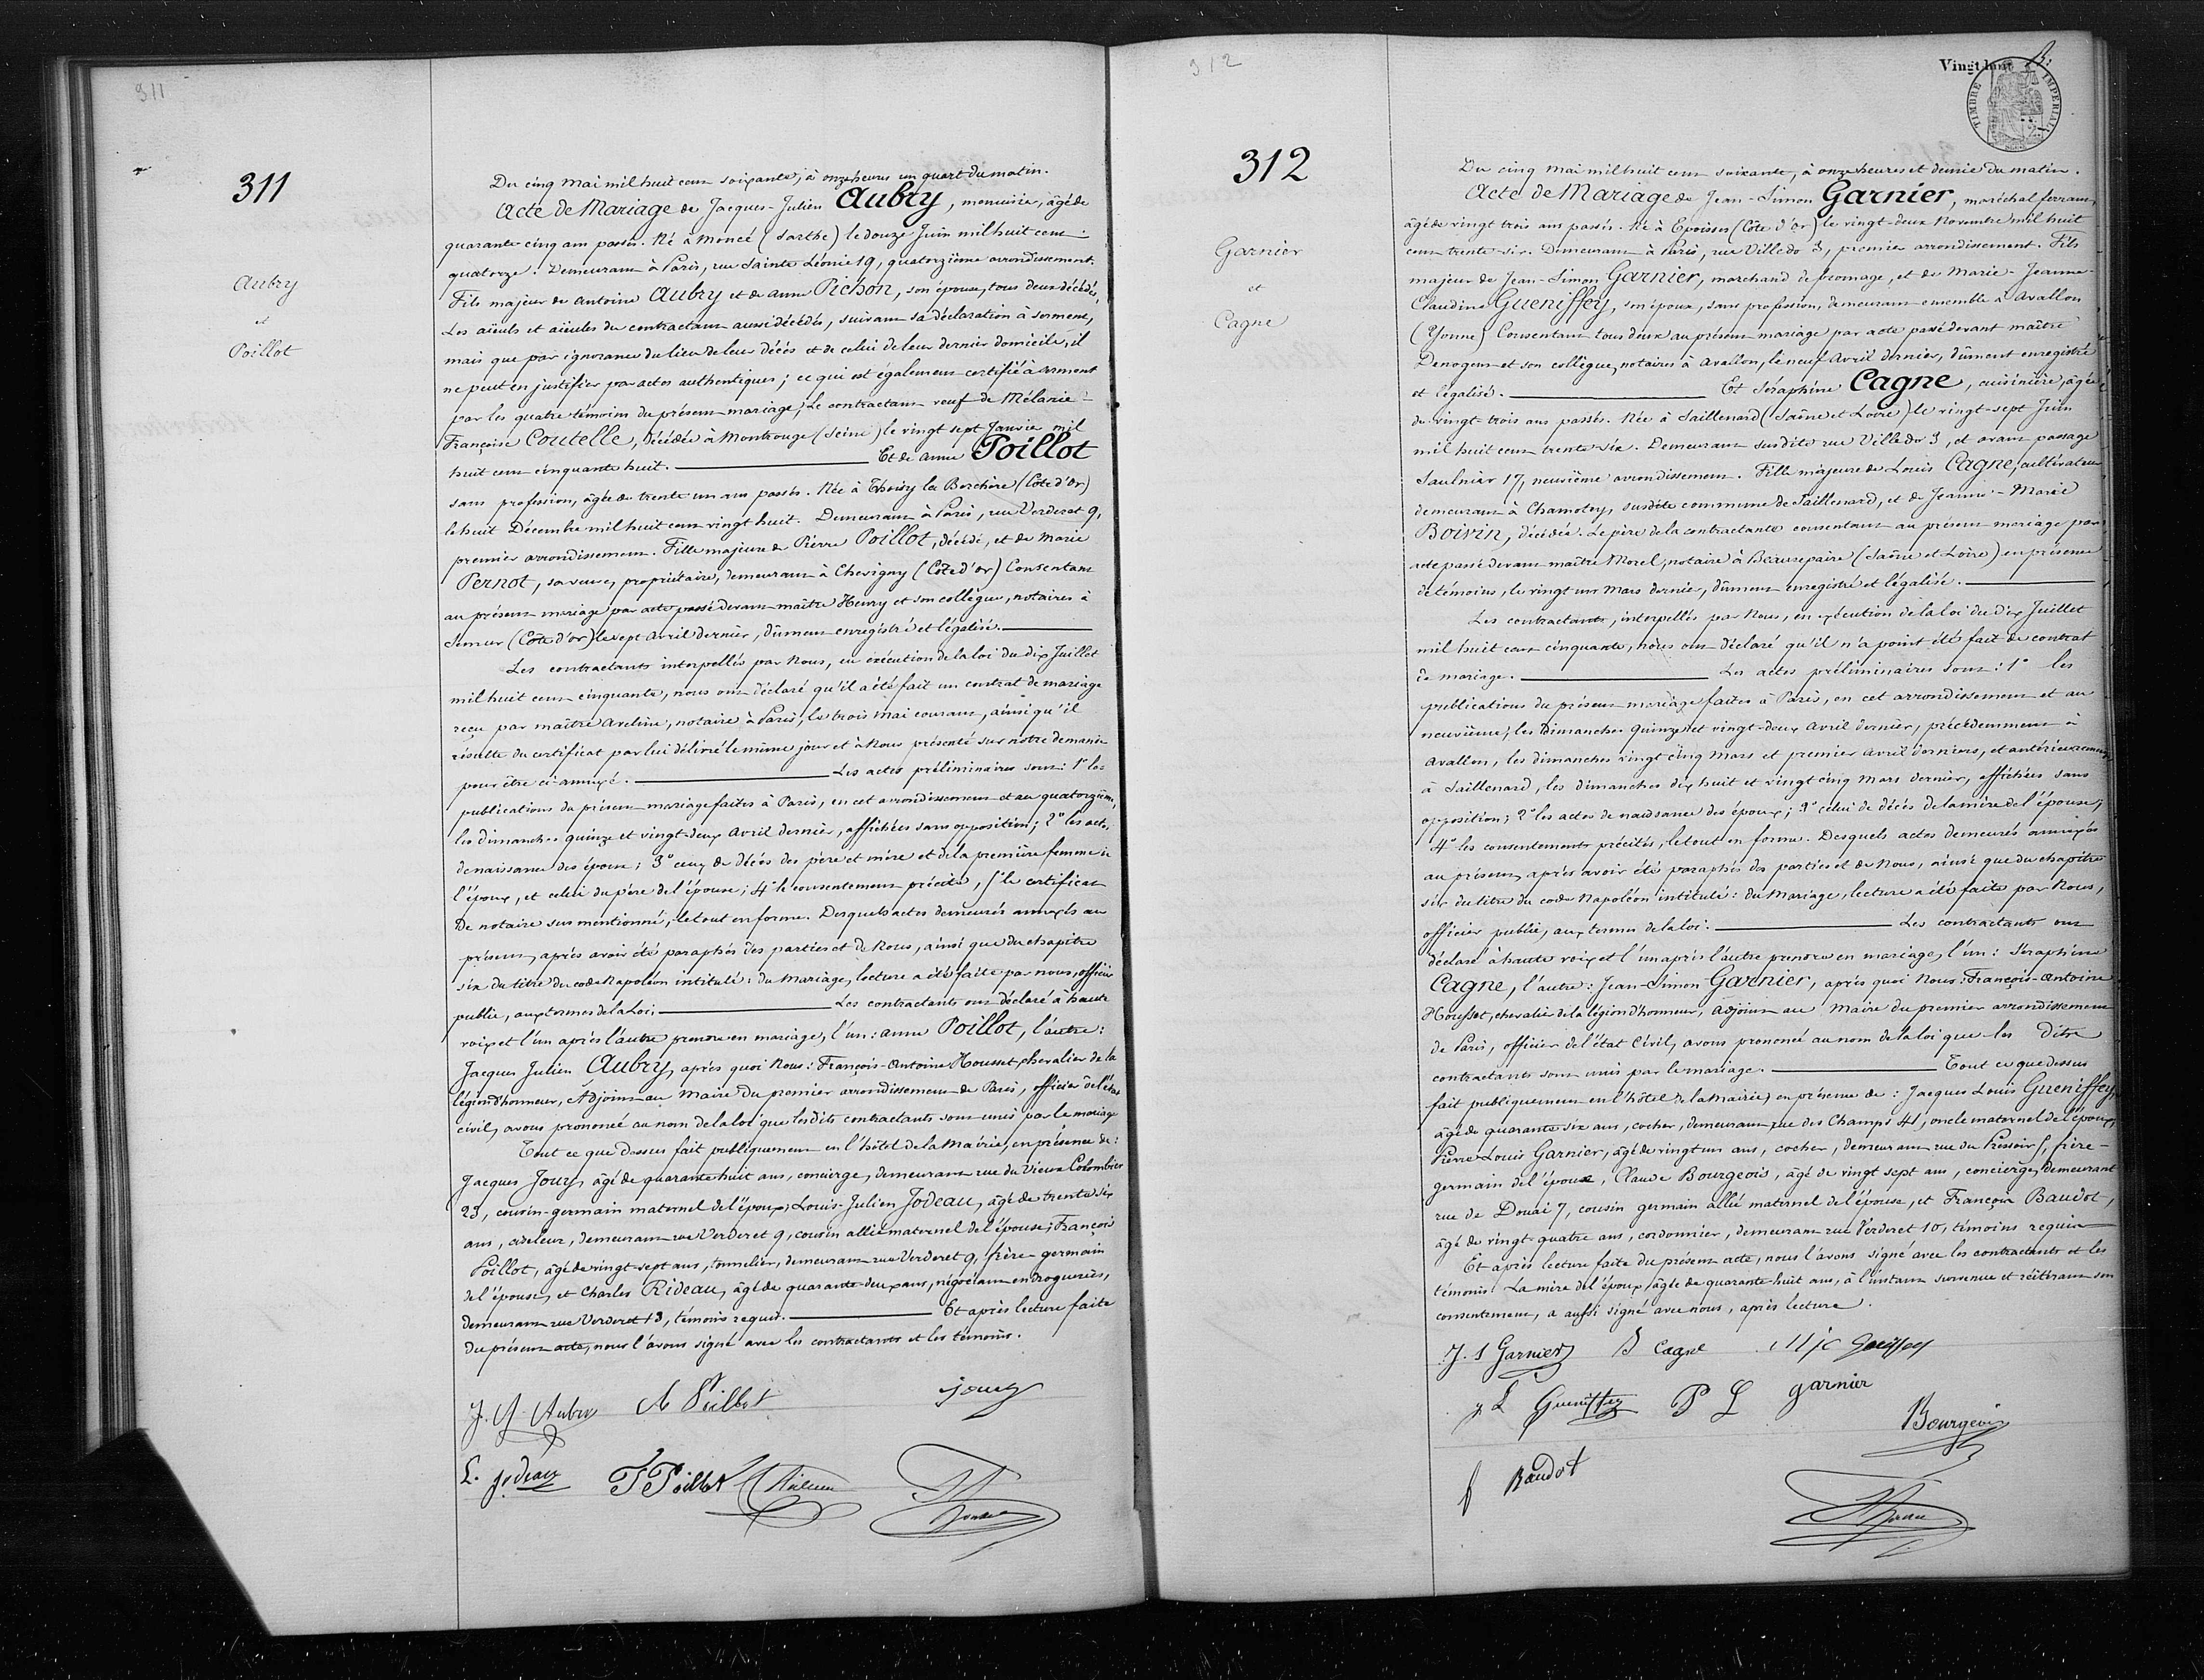 311
311
Aubry
et
Poillot
Du cinq Mai mil huit cent soixante, à onze heures un quart du matin.
Acte de Mariage de Jacques-Julien Aubry, menuisier, âgé de
quarante cinq ans passés. Né à Moncé (Sarthe) le douze Juin mil huit cent
quatorze. Demeurant à Paris, rue Sainte Léonie 19, quatorzième arrondissement.
Fils majeur de Antoine Aubry et de Anne Pichon, son épouse, tous deux décédés,
Les aïeuls et aïeules du contractant aussi décédés, suivant sa déclaration à serment,
mais que par ignorance du lieu de leur décès et de celui de leur dernier domicile, il
ne peut en justifier par actes authentiques; ce qui est également certifié à serment
par les quatre témoins du présent mariage; Le contractant veuf de Mélanie-
Françoise Coutelle, décédée à Montrouge (Seine) le vingt sept Janvier mil
huit cent cinquante huit. Et de Anne Poillot
sans profession, âgée de trente un ans passés. Née à Thoisy la Berchère (Côte d'or)
le huit Décembre mil huit cent vingt huit. Demeurant à Paris, rue Verderet 9,
premier arrondissement. Fille majeure de Pierre Poillot, décédé, et de Marie
Pernot, sa veuve, propriétaire, demeurant à Chevigny (Côte d'or) Consentant
au présent mariage par acte passé devant maître Henry et son collègue, notaires à
Semur (Côte d'or) le sept Avril dernier, dûment enregistré et légalisé.
Les contractants interpellés par Nous, en exécution de la loi du dix Juillet
mil huit cent cinquante, nous ont déclaré qu'il a été fait un contrat de mariage
reçu par maître Aveline, notaire à Paris, le trois Mai courant, ainsi qu'il
résulte du certificat par lui délivré le même jour et à Nous présenté sur notre demande
pour être ci-annexé. Les actes préliminaires sont: 1° les
publications du présent mariage faites à Paris, en cet arrondissement et au quatorzième,
les dimanches quinze et vingt-deux Avril dernier, affichées sans opposition; 2° les actes
de naissance des époux; 3° ceux de décès des père et mère et de la première femme de
l'époux, et celui du père de l'épouse; 4° le consentement précité, 5° le certificat
de notaire sus mentionné; le tout en forme. Desquels actes demeurés annexés au
présent, après avoir été paraphés des parties et de Nous, ainsi que du chapitre
six du titre du code Napoléon intitulé: du Mariage, lecture a été faite par nous, officier
public, aux termes de la Loi. Les contractants ont déclaré à haute
voix et l'un après l'autre prendre en mariage, l'un: Anne Poillot, l'autre:
Jacques Julien Aubry, après quoi Nous: François-Antoine Housset, chevalier de la
légion d'honneur, Adjoint au Maire du premier arrondissement de Paris, officier de l'état
civil, avons prononcé au nom de la loi que lesdits contractants sont unis par le mariage
Tout ce que dessus fait publiquement en l'hôtel de la Mairie, en présence de:
Jacques Joury, âgé de quarante huit ans, concierge, demeurant rue du Vieux Colombier
23, cousin-germain maternel de l'époux; Louis-Julien Jodeau, âgé de trente six
ans, ciseleur, demeurant rue Verderet 9, cousin allié maternel de l'épouse; François
Poillot, âgé de vingt-sept ans, tonnelier, demeurant rue Verderet 9, frère-germain
de l'épouse, et Charles Rideau, âgé de quarante-deux ans, négociant en drogueries,
demeurant rue Verderet 13, témoins requis. Et après lecture faite
du présent acte, nous l'avons signé avec les contractants et les témoins.
J. J. Aubry A Poillot Joury
L. Jodeau F Poillot
312
Vingt huit
TIMBRE IMPERIAL
312
Garnier
et
Cagne
Du cinq Mai mil huit cent soixante, à onze heures et demie du matin.
Acte de Mariage de Jean-Simon Garnier, maréchal ferrant,
âgé de vingt trois ans passés. Né à Epoisses (Côte d'or) le vingt-deux Novembre mil huit
cent trente six. Demeurant à Paris, rue Villedo 3, premier arrondissement. Fils
majeur de Jean-Simon Garnier, marchand de fromage, et de Marie-Jeanne-
Claudine Gueniffey, son épouse, sans profession, demeurant ensemble à Avallon
(Yonne) Consentant tous deux au présent mariage par acte passé devant maître
Denogent et son collègue, notaires à Avallon, le neuf Avril dernier, dûment enregistré
et légalisé. Et Séraphine Cagne, cuisinière, âgée
de vingt-trois ans passés. Née à Saillenard (Saône et Loire) le vingt-sept Juin
mil huit cent trente six. Demeurant susdite rue Villedo 3, et avant passage
Saulnier 17, neuvième arrondissement. Fille majeure de Louis Cagne, cultivateur
demeurant à Chamotey, susdite commune de Saillenard, et de Jeanne-Marie
Boivin, décédée. Le père de la contractante consentant au présent mariage par
acte passé devant maître Morel, notaire à Beaurepaire (Saône et Loire) en présence
de témoins, le vingt un Mars dernier, dûment enregistré et légalisé.
Les contractants, interpellés par Nous, en exécution de la loi du dix Juillet
mil huit cent cinquante, nous ont déclaré qu'il n'a point été fait de contrat
de mariage. Les actes préliminaires sont: 1° les
publications du présent mariage faites à Paris, en cet arrondissement et au
neuvième, les Dimanches quinze et vingt-deux Avril dernier, précédemment à
Avallon, les dimanches vingt cinq Mars et premier Avril derniers, et antérieurement
à Saillenard, les dimanches dix huit et vingt cinq Mars dernier, affichées sans
opposition; 2° les actes de naissance des époux; 3° celui de décès de la mère de l'épouse;
4° les consentements précités, le tout en forme. Desquels actes demeurés annexés
au présent, après avoir été paraphés des parties et de Nous, ainsi que du chapitre
six du titre du code Napoléon intitulé: du Mariage, lecture a été faite par Nous,
officier public, aux termes de la loi. Les contractants ont
déclaré à haute voix et l'un après l'autre prendre en mariage, l'un: Séraphine
Cagne, l'autre: Jean-Simon Garnier, après quoi Nous: François-Antoine
Housset, chevalier de la légion d'honneur, Adjoint au Maire du premier arrondissement
de Paris, officier de l'état Civil, avons prononcé au nom de la loi que les dits
contractants sont unis par le mariage. Tout ce que dessus
fait publiquement en l'hôtel de la Mairie, en présence de: Jacques Louis Gueniffey,
âgé de quarante six ans, cocher, demeurant rue des Champs 41, oncle maternel de l'époux,
Pierre-Louis Garnier, âgé de vingt un ans, cocher, demeurant rue du Pressoir 5, frère-
germain de l'époux, Claude Bourgeois, âgé de vingt sept ans, concierge, demeurant
rue de Douai 7, cousin germain allié maternel de l'épouse, et François Baudot,
âgé de vingt-quatre ans, cordonnier, demeurant rue Verderet 10, témoins requis
Et après lecture faite du présent acte, nous l'avons signé avec les contractants et les
témoins. La mère de l'époux, âgée de quarante-huit ans, à l'instant survenue et réitérant son
consentement, a aussi signé avec nous, après lecture.
J. S Garnier S Cagne
J L Gueniffey P L garnier
Bourgeois
f Baudot